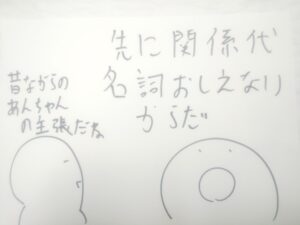 先に関係代
名詞おしえなり
からだ
昔ながらの
あんちゃん
の主張だな